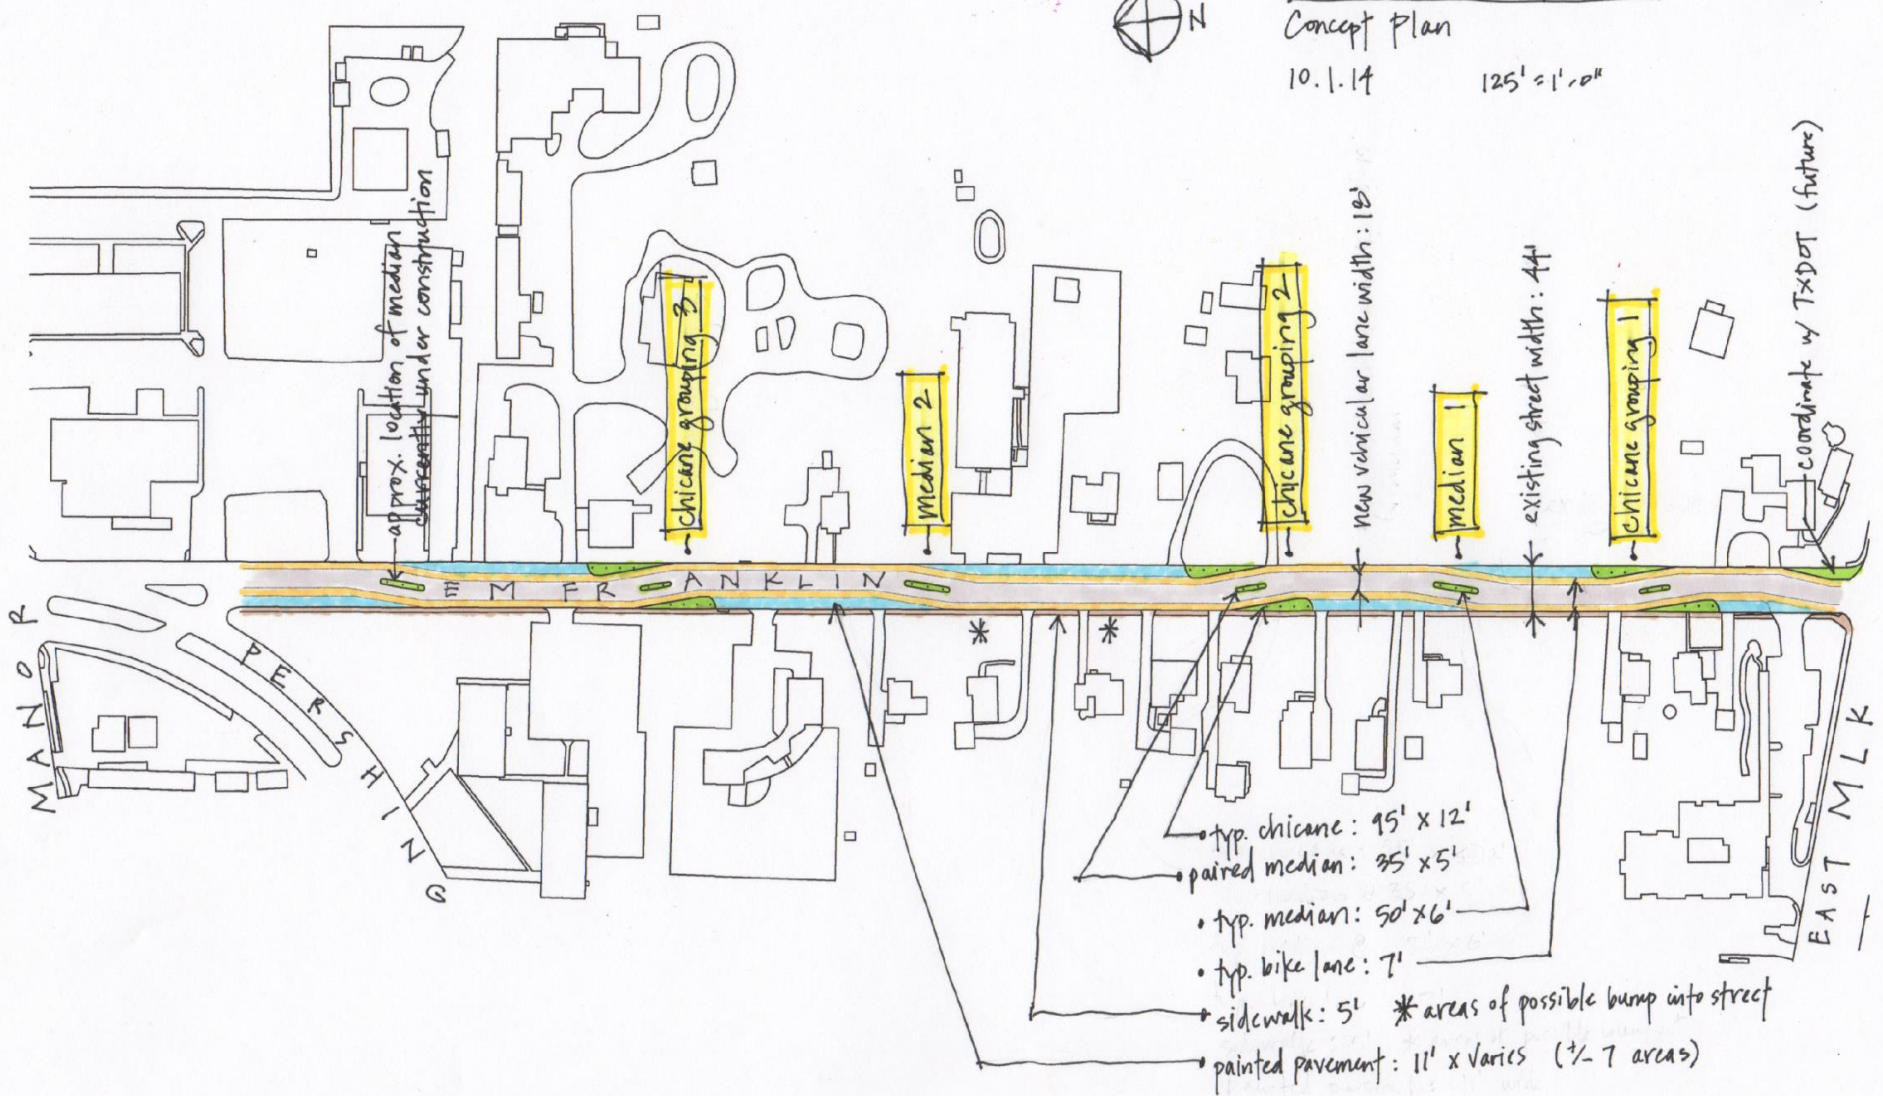 N
Concept Plan
10.1.14 125'=1'-0"
approx. location of median
currently under construction
chicane grouping 3
median 2
chicane grouping 2
new vehicular lane width: 18'
median 1
existing street width: 44'
chicane grouping 1
coordinate w/ TXDOT (future)
EM FRANKLIN
MANOR
PERSHING
EAST MLK
• typ. chicane: 95' x 12'
• paired median: 35' x 5'
• typ. median: 50' x 6'
• typ. bike lane: 7'
• sidewalk: 5' * areas of possible bump into street
• painted pavement: 11' x varies (+/- 7 areas)
* *